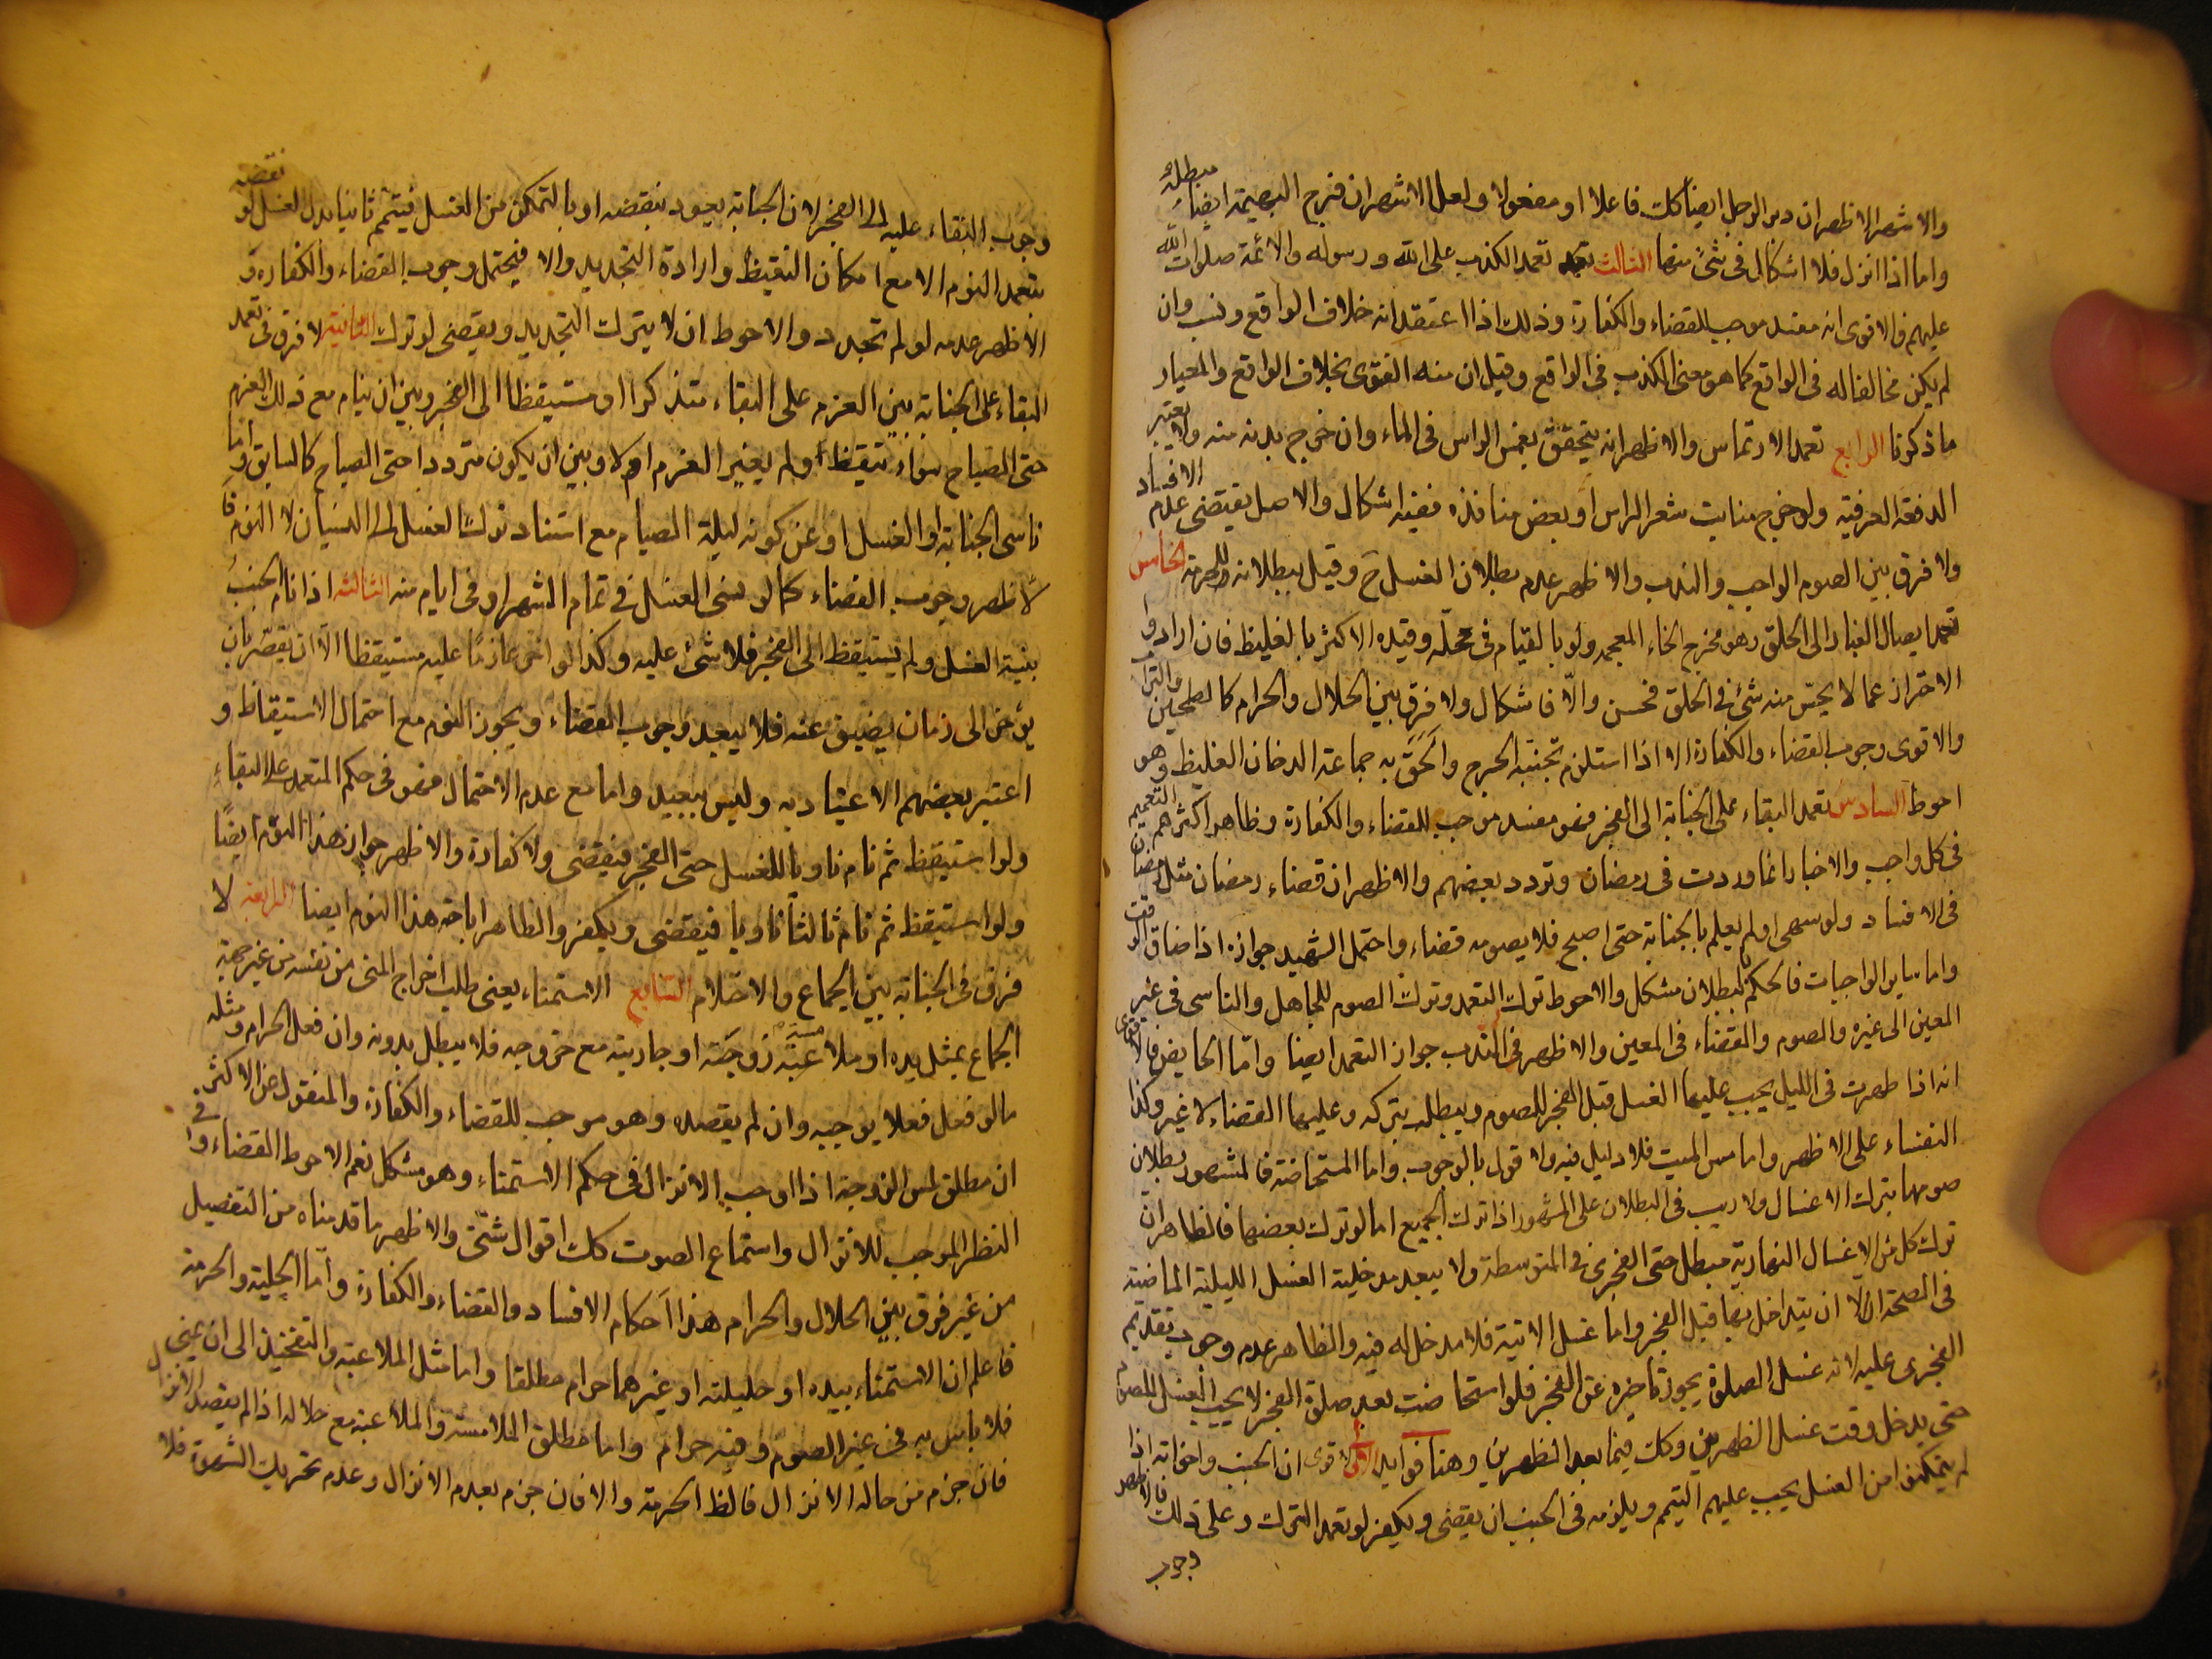 والاشهر الاظهر ان دبر الرجل ايضا كك فاعلا او مفعولا ولعل الاشهر ان فرج البهيمة ايضا مبطل
واما اذا انزل فلا اشكال فى شئ منها الثالث تعمد الكذب على الله ورسوله والائمة صلوات الله
عليهم والاقوى انه مفسد موجب للقضاء والكفارة وذلك اذا اعتقد انه خلاف الواقع ونسب وان
لم يكن مخالفا له فى الواقع كما هو معنى الكذب فى الواقع وقيل ان منه الفتوى بخلاف الواقع والمعيار
ما ذكرنا الرابع تعمد الارتماس والاظهر انه يتحقق بغمس الراس فى الماء وان خرج بدنه منه ولا يعتبر
الدفعة العرفية ولو خرج منابت شعر الراس او بعض منافذه ففيه اشكال والاصل يقتضى عدم الافساد
ولا فرق بين الصوم الواجب والندب والاظهر عدم بطلان الغسل ح وقيل ببطلانه للحرمة الخامس
تعمد ايصال الغبار الى الحلق وهو مخرج الخاء المعجمه ولو بالقيام فى محله وقيده الاكثر بالغليظ فان ارادوا
الاحتراز عما لا يحس منه شئ فى الحلق فحسن والّا فاشكال ولا فرق بين الحلال والحرام كالطحين والتراب
والاقوى وجوب القضاء والكفارة الا اذا استلزم تجنبه الحرج والحق به جماعة الدخان الغليظ وهو
احوط السادس تعمد البقاء على الجنابة الى الفجر فهو مفسد موجب للقضاء والكفارة وظاهر اكثرهم التعميم
فى كل واجب والاخبار انما وردت فى رمضان وتردد بعضهم والاظهر ان قضاء رمضان مثل رمضان
فى الافساد ولو سهى او لم يعلم بالجنابة حتى اصبح فلا يصومه قضاء واحتمل الشهيد جوازه اذا ضاق الوقت
واما ساير الواجبات فالحكم بالبطلان مشكل والاحوط ترك التعمد وترك الصوم للجاهل والناسى فى غير
المعين الى غيره والصوم والقضاء فى المعين والاظهر فى الندب جواز التعمد ايضا واما الحايض فالاقوى
انه اذا طهرت فى الليل يجب عليها الغسل قبل الفجر للصوم ويبطل بتركه وعليها القضاء لا غير وكذا
النفساء على الاظهر واما مس الميت فلا دليل فيه ولا قول بالوجوب واما المستحاضة فالمشهور بطلان
صومها بترك الاغسال ولا ريب فى البطلان على المشهور اذا ترك الجميع اما لو ترك بعضها فالظاهر ان
ترك كل من الاغسال النهارية مبطل حتى الفجرى فى المتوسطة ولا يبعد مدخلية الغسل الليلية الماضية
فى الصحة الا ان يتداخل بما قبل الفجر واما غسل الاتية فلا مدخل له فيه والظاهر عدم وجوب تقديم
الفجرى عليه لانه غسل الصلوة يجوز تاخيره عن الفجر فلو استحاضت بعد صلوة الفجر لا يجب الغسل للصوم
حتى يدخل وقت غسل الظهرين وكك فيما بعد الظهرين وهنا فوايد الاولى الاقوى ان الجنب واخواته اذا
لم يتمكنوا من الغسل يجب عليهم التيمم ويلزمه فى الجنب ان يقضى ويكفر لو تعمد الترك وعلى ذلك فالاظهر
وجوب
وجوب البقاء عليه الى الفجر لان الجنابة يعود بنقضه او بالتمكن من الغسل فيتمم ثانيا بدل الغسل لو نقضه
بتعمد النوم الا مع امكان التيقظ وارادة التجديد والا فيحتمل وجوب القضاء والكفارة و
الاظهر عدمه لو لم تجدد والاحوط ان لا يترك التجديد ويقضى لو ترك الثانية لا فرق فى تعمد
البقاء على الجنابة بين العزم على البقاء متذكرا او مستيقظا الى الفجر وبين ان ينام مع ذلك العزم
حتى الصباح سواء تيقظ ولم يغير العزم ام لا وبين ان يكون مترددا حتى الصباح كالسابق واما
ناسى الجنابة او الغسل او عن كونه ليلة الصيام مع استناد ترك الغسل الى النسيان لا النوم فا
لاظهر وجوب القضاء كما لو نسى الغسل فى تمام الشهر او فى ايام منه الثالثة اذا نام الجنب
بنية الغسل ولم يستيقظ الى الفجر فلا شئ عليه وكذا لو اخر عازما عليه مستيقظا الّا ان يقصّر بان
يؤخر الى زمان يضيق عنه فلا يبعد وجوب القضاء ويجوز النوم مع احتمال الاستيقاظ و
اعتبر بعضهم الاعتياد به وليس ببعيد واما مع عدم الاحتمال فهو فى حكم المتعمد على البقاء
ولو استيقظ ثم نام ناويا للغسل حتى الفجر فيقضى ولا كفارة والاظهر جواز هذا النوم ايضا
ولو استيقظ ثم نام ثالثا ناويا فيقضى ويكفر والظاهر اباحة هذا النوم ايضا الرابعة لا
فرق فى الجنابة بين الجماع والاحتلام السابع الاستمناء يعنى طلب اخراج المنى من نفسه من غير جهة
الجماع بمثل يده او ملاعبة زوجته او جاريته مع خروجه فلا يبطل بدونه وان فعل الحرام ومثله
ما لو فعل فعلا يوجبه وان لم يقصده وهو موجب للقضاء والكفارة والمنقول عن الاكثر
ان مطلق لمس الزوجة اذا اوجب الانزال فى حكم الاستمناء وهو مشكل نعم الاحوط القضاء وفى
النظر الموجب للانزال واستماع الصوت كك اقوال شتّى والاظهر ما قدمناه من التفصيل
من غير فرق بين الحلال والحرام هذا احكام الافساد والقضاء والكفارة واما الحلية والحرمة
فاعلم ان الاستمناء بيده او حليلته او غيرهما حرام مطلقا واما مثل الملاعبة والتفخيذ الى ان يمنى
فلا باس به فى غير الصوم وفيه حرام واما مطلق الملامسة والملاعبة مع حلاله اذا لم يقصد الانزال
فان جزم من حاله الانزال فالظ الحرمة والا فان جزم بعدم الانزال وعدم تحريك الشهوة فلا